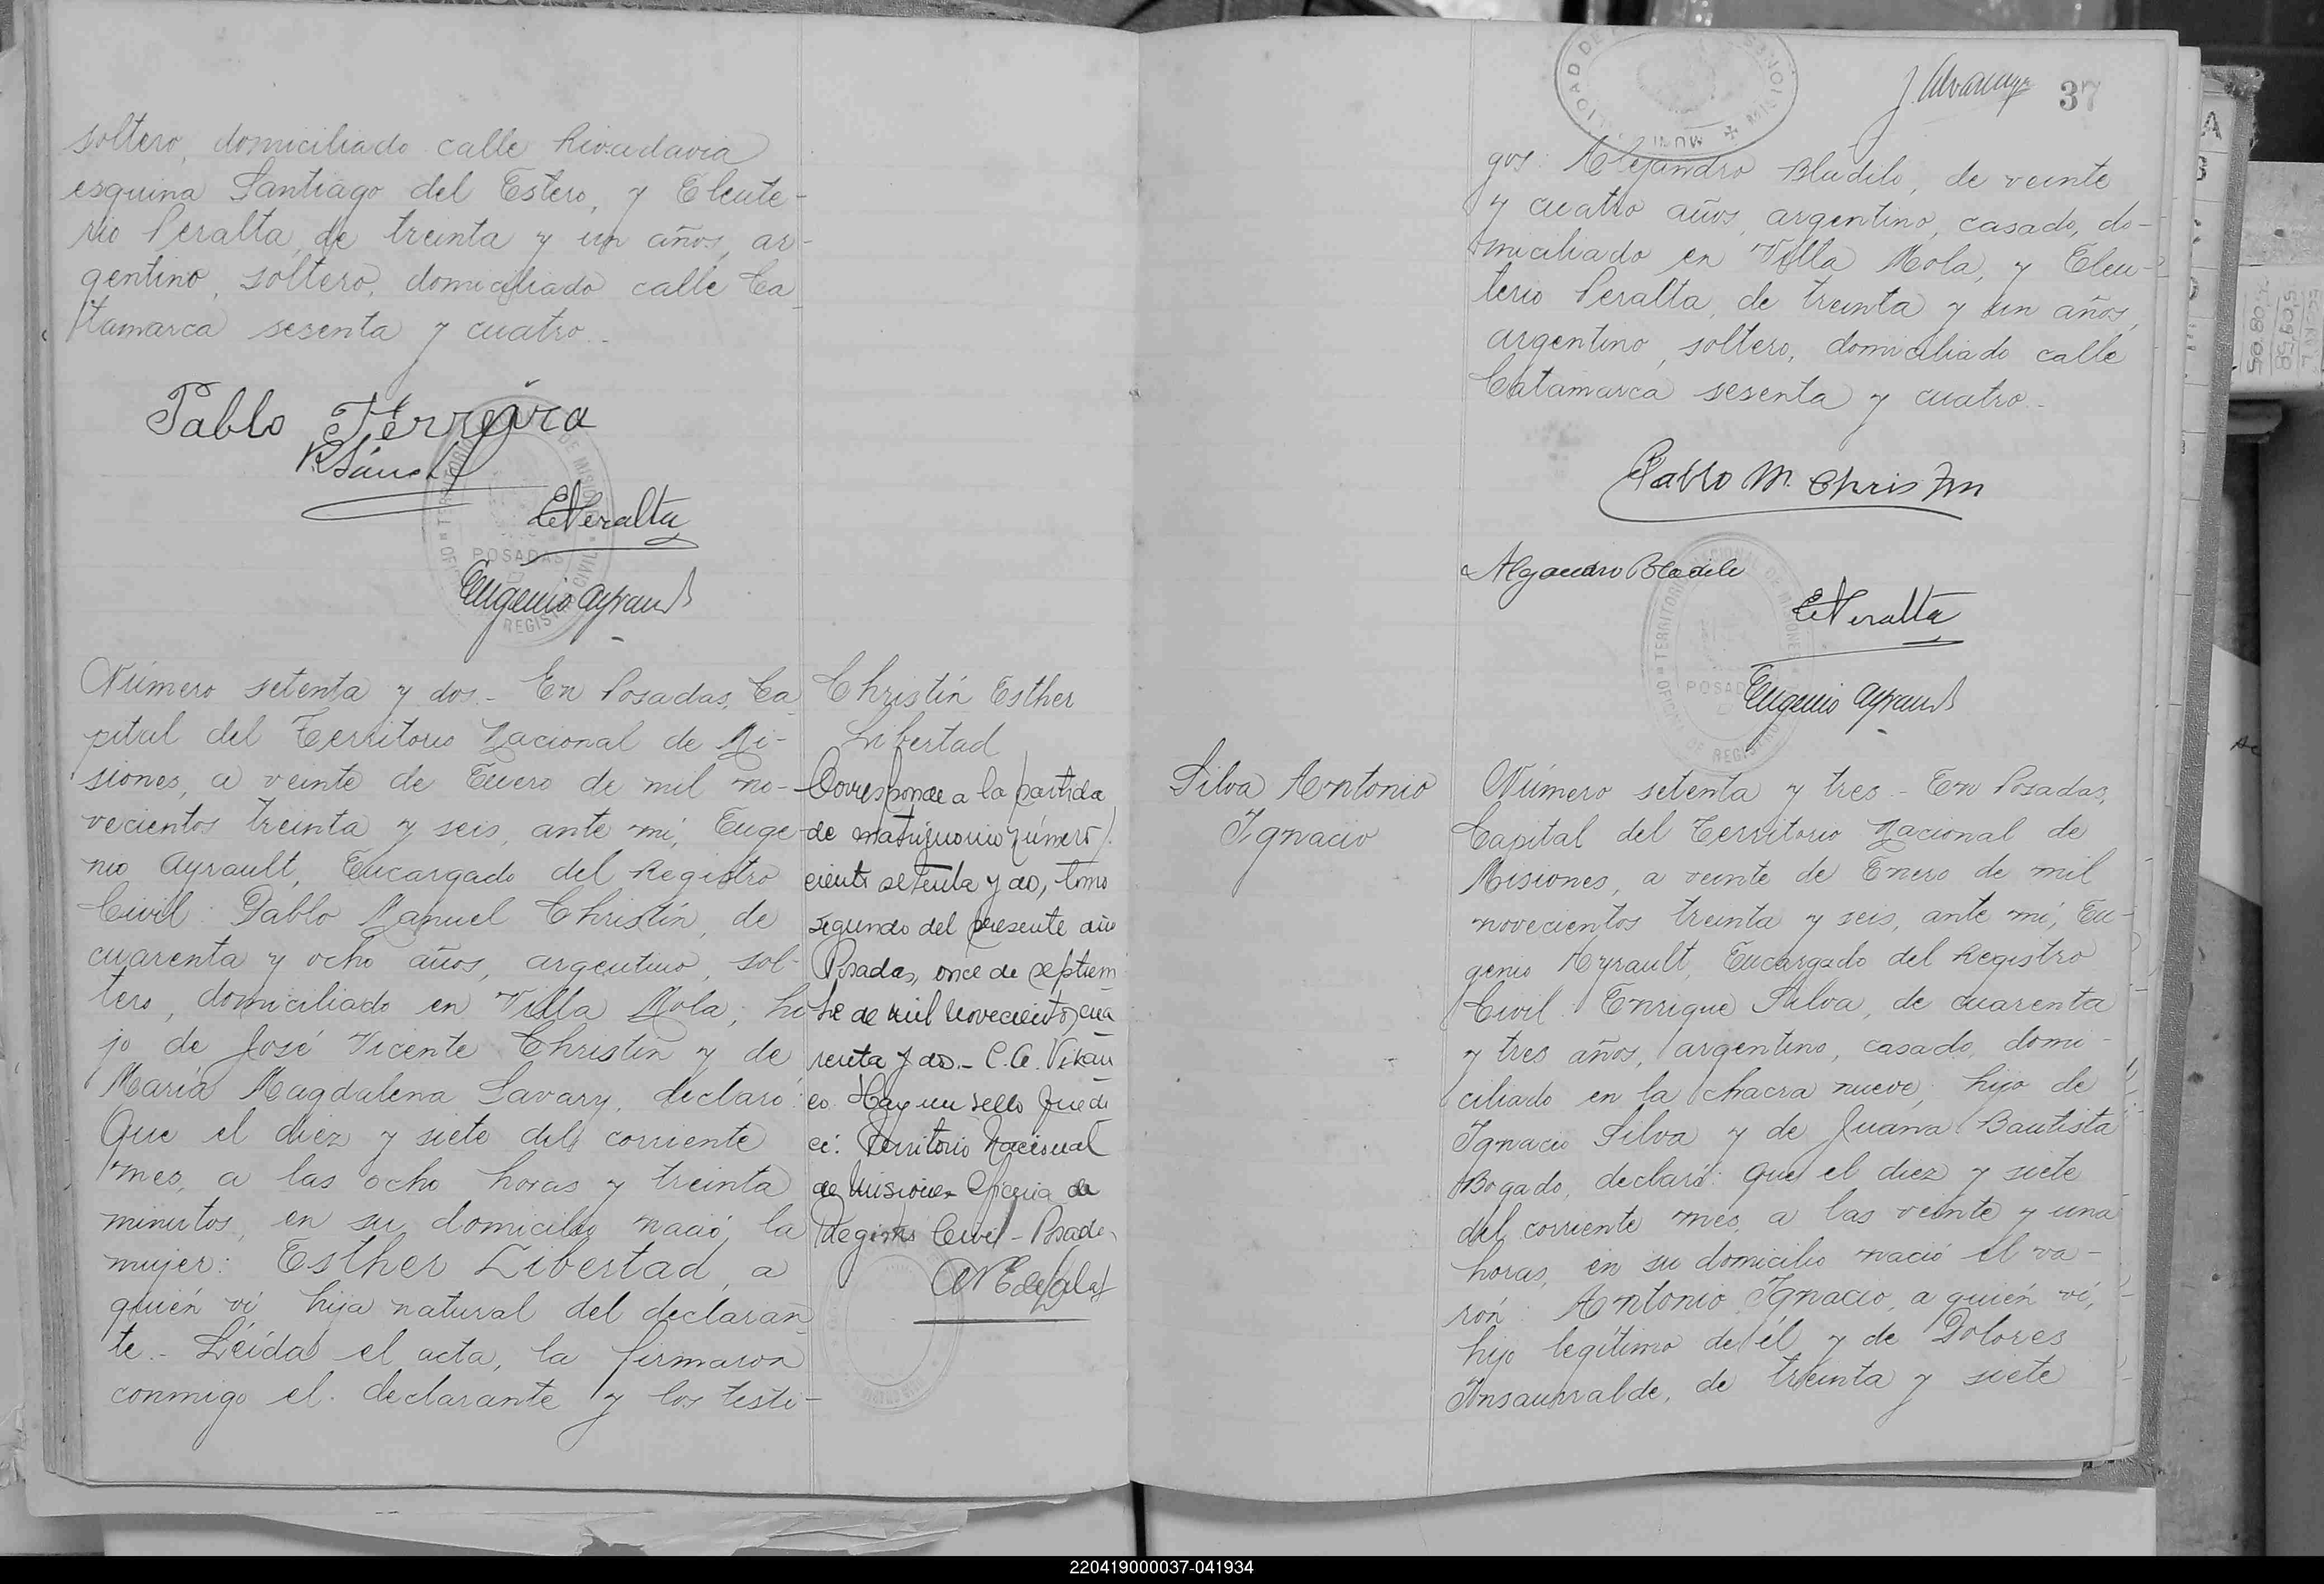 soltero, domiciliado calle Rivadavia
esquina Santiago del Estero, y Eleute-
rio Peralta, de treinta y un años, ar-
gentino, soltero, domiciliado calle Ca-
tamarca sesenta y cuatro.-
Pablo Ferreira
E Peralta
Eugenio Ayrault
TERRITORIO DE MISIONES
POSADAS
REGISTRO CIVIL
Número setenta y dos.- En Posadas, Ca-
pital del Territorio Nacional de Mi-
siones, a veinte de Enero de mil no-
vecientos treinta y seis, ante mí, Euge-
nio Ayrault, Encargado del Registro
Civil: Pablo Manuel Christín, de
cuarenta y ocho años, argentino, sol-
tero, domiciliado en Villa Mola, hi-
jo de José Vicente Christín y de
María Magdalena Savary, declaró:
Que el diez y siete del corriente
mes, a las ocho horas y treinta
minutos, en su domicilio nació la
mujer: Esther Libertad, a
quién ví, hija natural del declaran-
te.- Leída el acta, la firmaron
conmigo el declarante y los testi-
Christín Esther
Libertad
Corresponde a la partida
de matrimonio número
ciento setenta y dos, tomo
segundo del presente año
Posadas, once de septiem-
bre de mil novecientos cua-
renta y dos.- C. A.
Hay un sello que di-
ce: Territorio Nacional
de Misiones Oficina de
Registro Civil - Posadas
37
gos: Alejandro Bladilo, de veinte
y cuatro años, argentino, casado, do-
miciliado en Villa Mola, y Eleu-
terio Peralta, de treinta y un años,
argentino, soltero, domiciliado calle
Catamarca sesenta y cuatro.-
Pablo M. Christin
Alejandro Bladilo
E Peralta
Eugenio Ayrault
TERRITORIO NACIONAL DE MISIONES
POSADAS
OFICINA DE REGISTRO
Silva Antonio
Ignacio
Número setenta y tres.- En Posadas,
Capital del Territorio Nacional de
Misiones, a veinte de Enero de mil
novecientos treinta y seis, ante mí, Eu-
genio Ayrault, Encargado del Registro
Civil: Enrique Silva, de cuarenta
y tres años, argentino, casado, domi-
ciliado en la chacra nueve, hijo de
Ignacio Silva y de Juana Bautista
Bogado, declaró: Que el diez y siete
del corriente mes, a las veinte y una
horas, en su domicilio nació el va-
rón: Antonio Ignacio, a quién ví,
hijo legítimo de él y de Dolores
Insaurralde, de treinta y siete
220419000037-041934